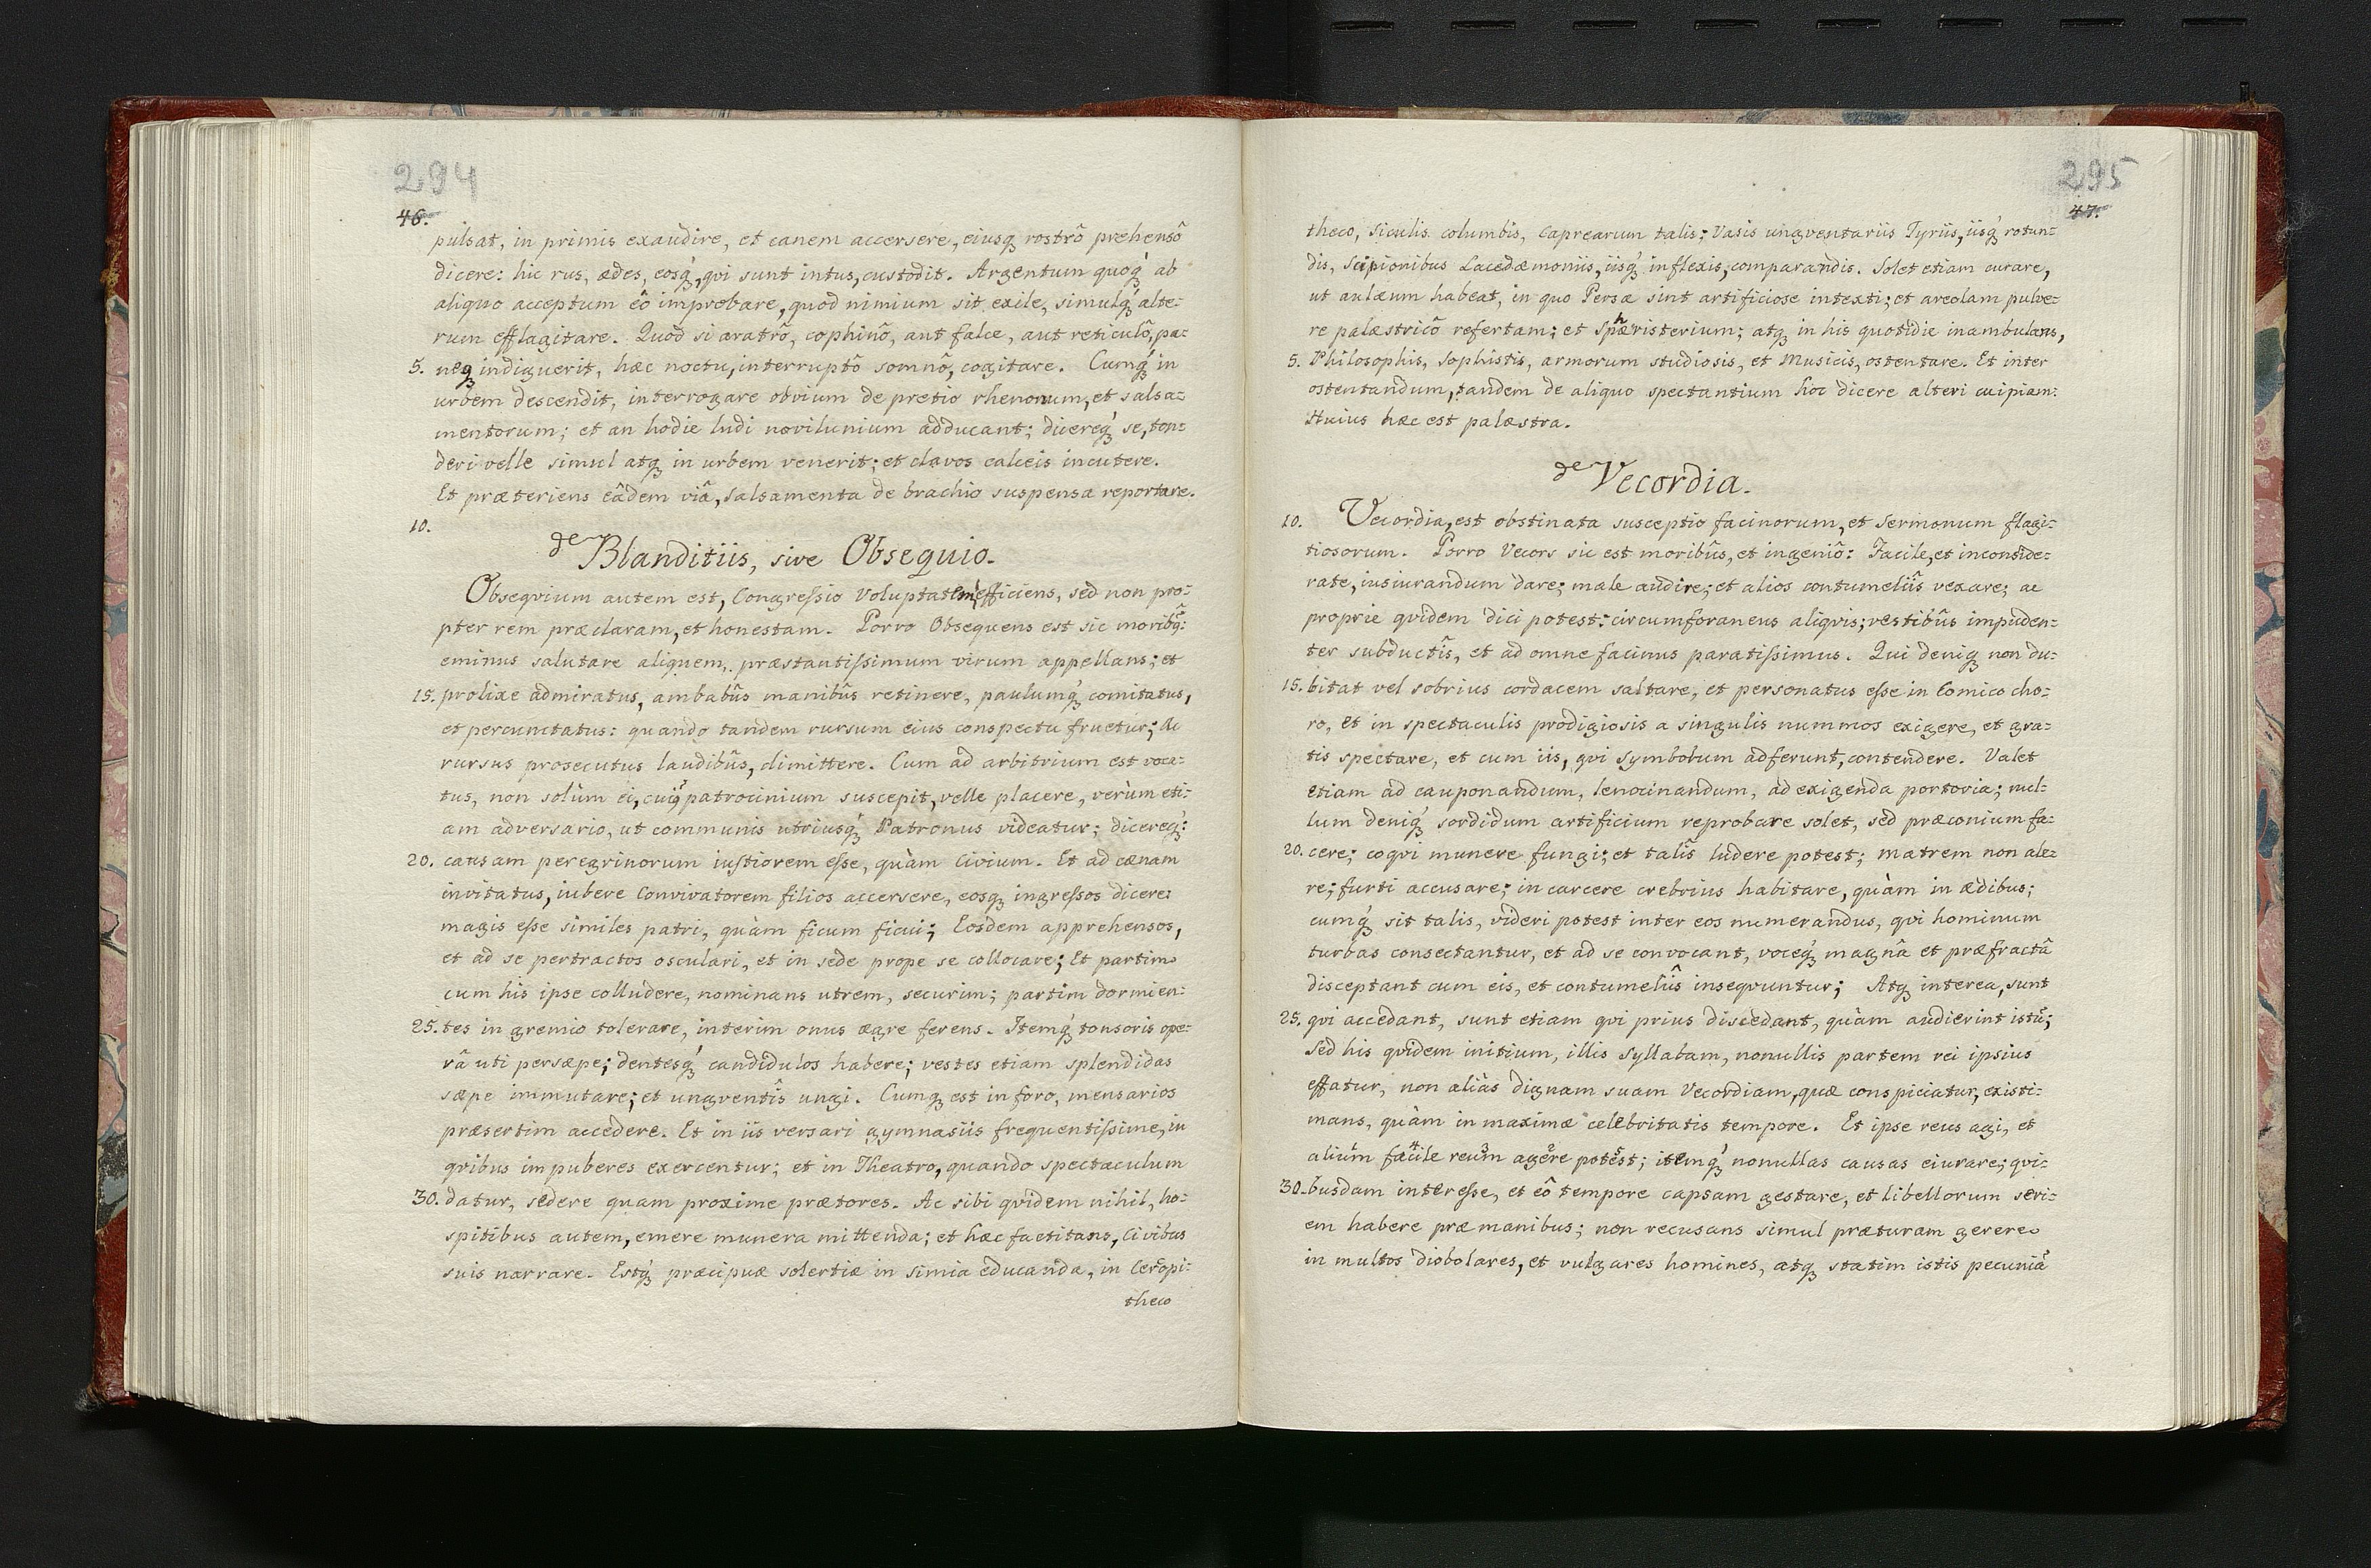 294
46.
pulsat, in primis exaudire, et canem accersere, eiusq́ rostrô prehensô
dicere: hic rus, ædes, eosq́, qvi sunt intus, custodit. Argentum quoq́ ab
aliquo acceptum eô improbare, quod nimium sit exile, simulq́ alte=
rum efflagitare. Quod si aratrô, cophinô, aut falce, aut reticulô, pa=
5. neq indiguerit, hæc noctu, interruptô somnô, cogitare. Cumq́ in
urbem descendit, interrogare obvium de pretio rhenonum, et salsa=
mentorum; et an hodie ludi novilunium adducant; dicereq́ se, ton=
deri velle simul atq́ in urbem venerit; et clavos calceis incutere.
Et præteriens eâdem viâ, salsamenta de brachio suspensa reportare.
10.
de Blanditiis, sive Obsequio.
Obseqvium autem est, Congreſsio Voluptatem efficiens, sed non pro=
pter rem præclaram, et honestam. Porro Obsequens est sic moribq̃:
eminus salutare aliquem, præstantiſsimum virum appellans; et
15. prolixe admiratus, ambabûs manibûs retinere, paulumq́ comitatus,
et percunctatus: quando tandem rursum eius conspectu fruetur; Ac
rursus prosecutus laudibûs, dimittere. Cum ad arbitrium est voca=
tus, non solùm ei, cuiq́ patrocinium suscepit, velle placere, verùm eti=
am adversario, ut communis utriusq́ Patronus videatur; dicereq́:
20. causam peregrinorum iustiorem eſse, quàm Civium. Et ad cænam
invitatus, iubere Convivatorem filios accersere, eosq́ ingreſsos dicere:
magis eſse similes patri, quàm ficum ficui; Eosdem apprehensos,
et ad se pertractos osculari, et in sede prope se collocare; Et partim
cum his ipse colludere, nominans utrem, securim; partim dormien=
25. tes in gremio tolerare, interim onus ægre ferens. Itemq́ tonsoris ope=
râ uti persæpe; dentesq́ candidulos habere; vestes etiam splendidas
sæpe immutare; et ungventîs ungi. Cumq́ est in foro, mensarios
præsertim accedere. Et in iis versari gymnasiis frequentiſsime, in
qvibus impuberes exercentur; et in Theatro, quando spectaculum
30. datur, sedere quam proxime prætores. Ac sibi qvidem nihil, ho=
spitibus autem, emere munera mittenda; et hæc factitans, Civibus
suis narrare. Estq́ præcipuæ solertiæ in simia educanda, in Cercopi=
theco
295
47.
theco, Siculis columbis, Caprearum talis; Vasis ungventariis Tyriis, iisq́ rotun=
dis, Scipionibus Lacedæmoniis, iisq́ inflexis, comparandis. Solet etiam curare,
ut aulæum habeat, in quo Persæ sint artificiose intexti; et areolam pulve=
re palæstricô refertam; et sphæristerium; atq́ in his quotidie inambulans,
5. Philosophis, Sophistis, armorum studiosis, et Musicis, ostentare. Et inter
ostentandum, tandem de aliquo spectantium hoc dicere alteri cuipiam:
Huius hæc est palæstra.
de Vecordia.
10. Vecordia, est obstinata susceptio facinorum, et sermonum flagi=
tiosorum. Porro Vecors sic est moribûs, et ingeniô: Facile, et inconside=
rate, iusiurandum dare; male audire; et alios contumeliîs vexare; ac
proprie qvidem dici potest: circumforaneus aliqvis; vestibûs impuden=
ter subductîs, et ad omne facinus paratiſsimus. Qui deniq́ non du=
15. bitat vel sobrius cordacem saltare, et personatus eſse in Comico cho=
ro, et in spectaculis prodigiosis a singulis nummos exigere, et gra=
tis spectare, et cum iis, qvi symbolum adferunt, contendere. Valet
etiam ad cauponandum, lenocinandum, ad exigenda portoria; nul=
lum deniq́ sordidum artificium reprobare solet, sed præconium fa=
20. cere; coqvi munere fungi; et talîs ludere potest; matrem non ale=
re; furti accusare; in carcere crebrius habitare, quàm in ædibus;
cumq́ sit talis, videri potest inter eos numerandus, qvi hominum
turbas consectantur, et ad se convocant, voceq́ magnâ et præfractâ
disceptant cum eis, et contumeliîs inseqvuntur; Atq́ interea, sunt
25. qvi accedant, sunt etiam qvi prius discedant, quàm audierint istu;
sed his qvidem initium, illis syllabam, nonullis partem rei ipsius
effatur, non aliàs dignam suam Vecordiam, quæ conspiciatur, existi=
mans, quàm in maximæ celebritatis tempore. Et ipse reus agi, et
alium facile reum agere potest; itemq́ nonullas causas eiurare; qvi=
30. busdam intereſse, et eô tempore capsam gestare, et libellorum seri=
em habere præ manibus; non recusans simul præturam gerere
in multos diobolares, et vulgares homines, atq́ statim istis pecuniâ